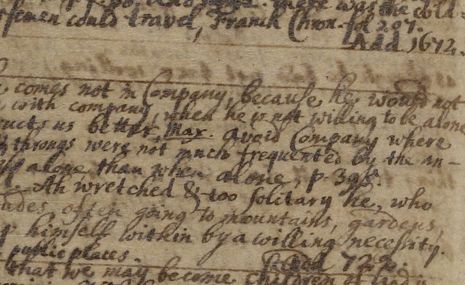 there was the cold
semen could travel, Franck Chron. fol 207.
Add 1672.
comes not in Company, because he would not
with company, when he is not willing to be alone
ructs us better, Max. avoid Company where
throngs were not much frequented by the an-
alone than when alone, p. 396.
Ah wretched & too solitary he, who
ades often going to mountains, gardens,
himself within by a willing necessity.
public places.
that we may become children of